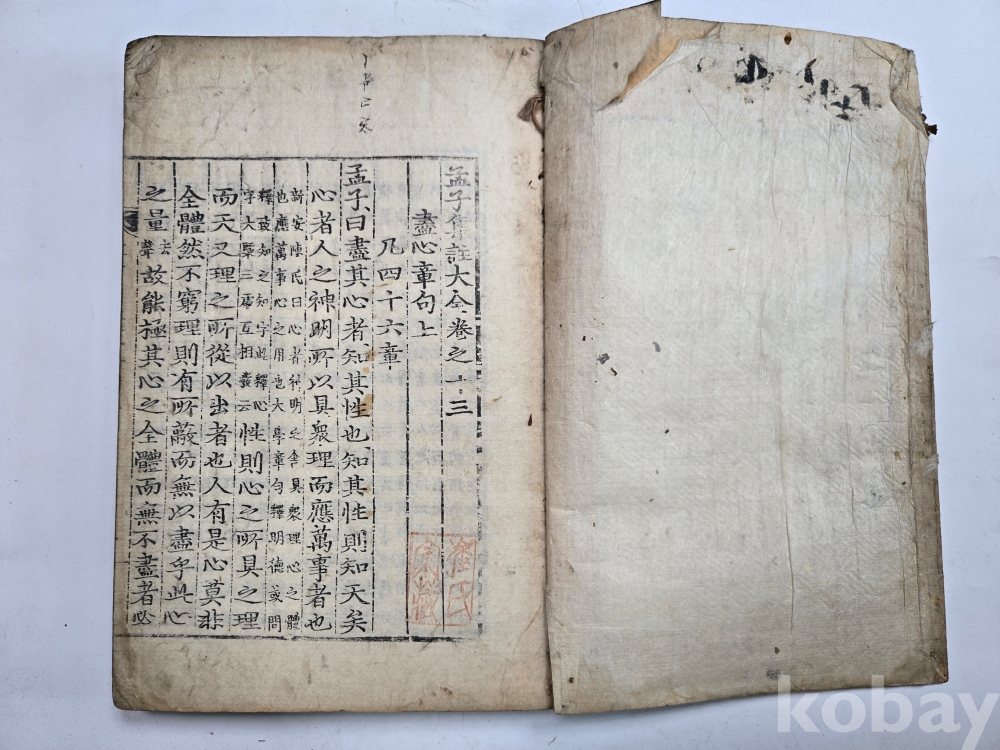 孟子集註大全卷之十三
盡心章句上
凡四十六章
孟子曰盡其心者、知其性也、知其性則知天矣
心者人之神明所以具衆理而應萬事者也
新安陳氏曰心者神明之舍具衆理心之體
也應萬事心之用也大學章句釋明德或問
釋致知之知字此釋心
字大槩三處互相發云性則心之所具之理
而天又理之所從以出者也人有是心莫非
全體然不窮理則有所蔽而無以盡乎此心
之量去聲故能極其心之全體而無不盡者必
kobay